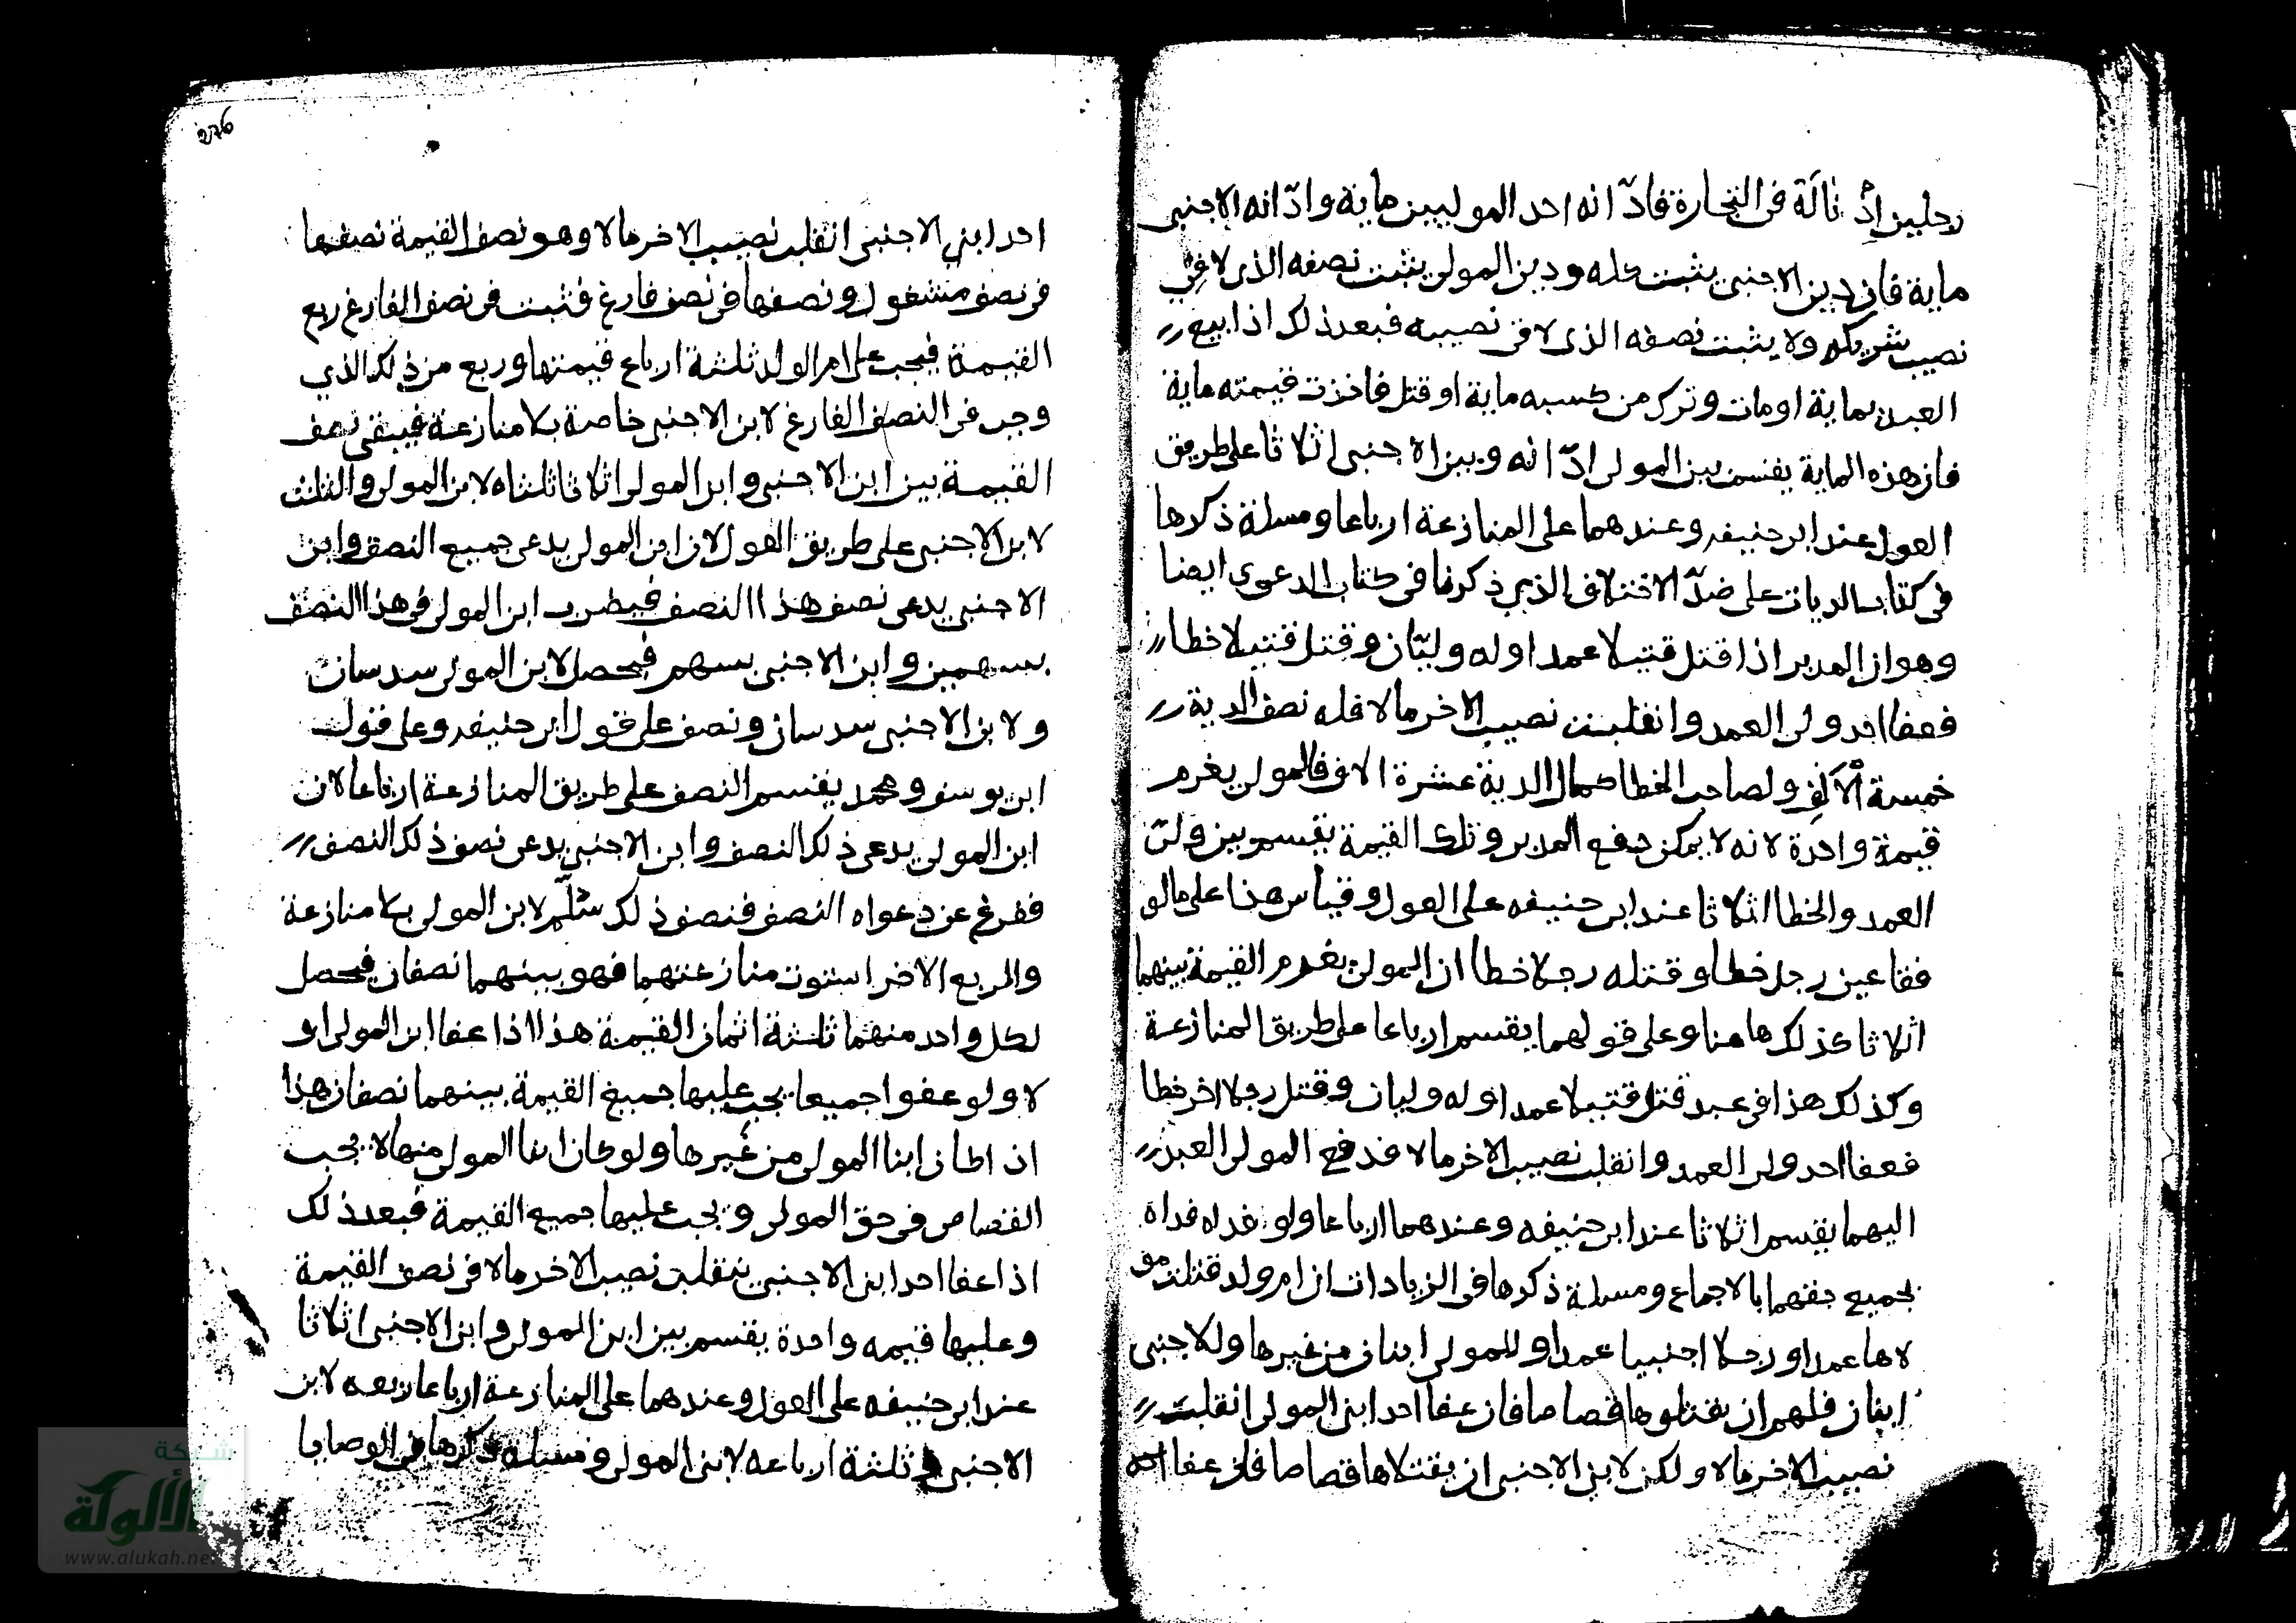 رجلين اذنا له في التجارة فادّانه احد الموليين ماية وادّانه الاجنبي
ماية فان دين الاجنبي يثبت كله ودين المولى يثبت نصفه الذي لاقى
نصيب شريكه ولا يثبت نصفه الذي لاقى نصيبه فبعد ذلك اذا بيع
العبد بماية او مات وترك من كسبه ماية او قتل فاخذت قيمته ماية
فان هذه الماية يقسم بين المولى ادّانه وبين الاجنبي اثلاثا على طريق
العول عند ابي حنيفه وعندهما على المنازعة ارباعا ومسلة ذكرها
في كتاب الديات على ضدّ الاختلاف الذي ذكرنا في كتاب الدعوى ايضا
وهو ان المدبر اذا قتل قتيلا عمدا وله وليّان وقتل قتيلا خطا
فعفا احد ولى العمد وانقلبت نصيب الاخر مالا فله نصف الدية
خمسة الآلف ولصاحب الخطا كمال الدية عشرة الاف فالمولى يغرم
قيمة واحدة لانه لا يمكن دفع المدبر وتلك القيمة يقسم بين ولىّ
العمد والخطا اثلاثا عند ابي حنيفه على العول وقياس هذا على ما لو
فقا عين رجل خطا وقتله رجلا خطا ان المولى يغرم القيمة بينهما
اثلاثا كذلك هاهنا وعلى قولهما يقسم ارباعا على طريق المنازعة
وكذلك هذا في عبد قتل قتيلا عمدا وله وليان وقتل رجلا اخر خطا
فعفا احد ولى العمد وانقلب نصيب الاخر مالا فدفع المولى العبد
اليهما يقسم اثلاثا عند ابي حنيفه وعندهما ارباعا ولو فداه فداه
بجميع حقهما بالاجماع ومسلة ذكرها في الزيادات ان ام ولد قتلت مو
لاها عمدا ورجلا اجنبيا عمدا وللمولى ابنان من غيرها وللاجنبي
ابنان فلهم ان يقتلوها قصاصا فان عفا احد ابنى المولى انقلبت
نصيب الاخر مالا ولكن لابنى الاجنبي ان يقتلاها قصاصا فان عفا احد
276
احد ابني الاجنبي انقلب نصيب الاخر مالا وهو نصف القيمة نصفها
في نصف مشغول ونصفها في نصف فارغ فتبت في نصف الفارغ ربع
القيمة فيجب على ام الولد ثلثة ارباع قيمتها وربع من ذلك الذي
وجب في النصف الفارغ لابن الاجنبي خاصة بلا منازعة فيبقى نصف
القيمة بين ابن الاجنبي وابن المولى اثلاثا ثلثاه لابن المولى والثلث
لابن الاجنبي على طريق العول لان ابن المولى يدعى جميع النصف وابن
الاجنبي يدعى نصف هذا النصف فيضرب ابن المولى في هذا النصف
بسهمين وابن الاجنبي بسهم فيحصل لابن المولى سدسان
ولابن الاجنبي سدسان ونصف على قول ابي حنيفه وعلى قول
ابي يوسف ومحمد يقسم النصف على طريق المنازعة ارباعا لان
ابن المولى يدعى ذلك النصف وابن الاجنبي يدعى نصف ذلك النصف
ففرغ عن دعواه النصف فنصف ذلك سُلّم لابن المولى بلا منازعة
والربع الاخر استوت منازعتهما فهو بينهما نصفان فيحصل
لكل واحد منهما ثلثة اثمان القيمة هذا اذا عفا ابن المولى او
لا ولو عفوا جميعا يجب عليها جميع القيمة بينهما نصفان هذا
اذا كان ابنا المولى من غيرها ولو كان ابنا المولى منها لا يجب
القصاص في حق المولى ويجب عليها جميع القيمة فبعد ذلك
اذا عفا احد ابنى الاجنبي ينقلب نصيب الاخر مالا في نصف القيمة
وعليها قيمه واحدة يقسم بين ابن المولى وابن الاجنبي اثلاثا
عند ابي حنيفه على العول وعندهما على المنازعة ارباعا ربعه لابن
الاجنبي وثلثة ارباعه لابنى المولى ومسلة ذكرها في الوصايا
شبكة
الألوكة
www.alukah.net